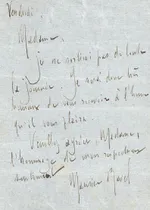 Vendredi
Madame,
Je ne sortirai pas de toute
la journée. Je serai donc très
heureux de vous recevoir à l'heure
qu'il vous plaira.
Veuillez agréer, Madame,
l'hommage de mon respectueux
dévouement
Maurice Ravel